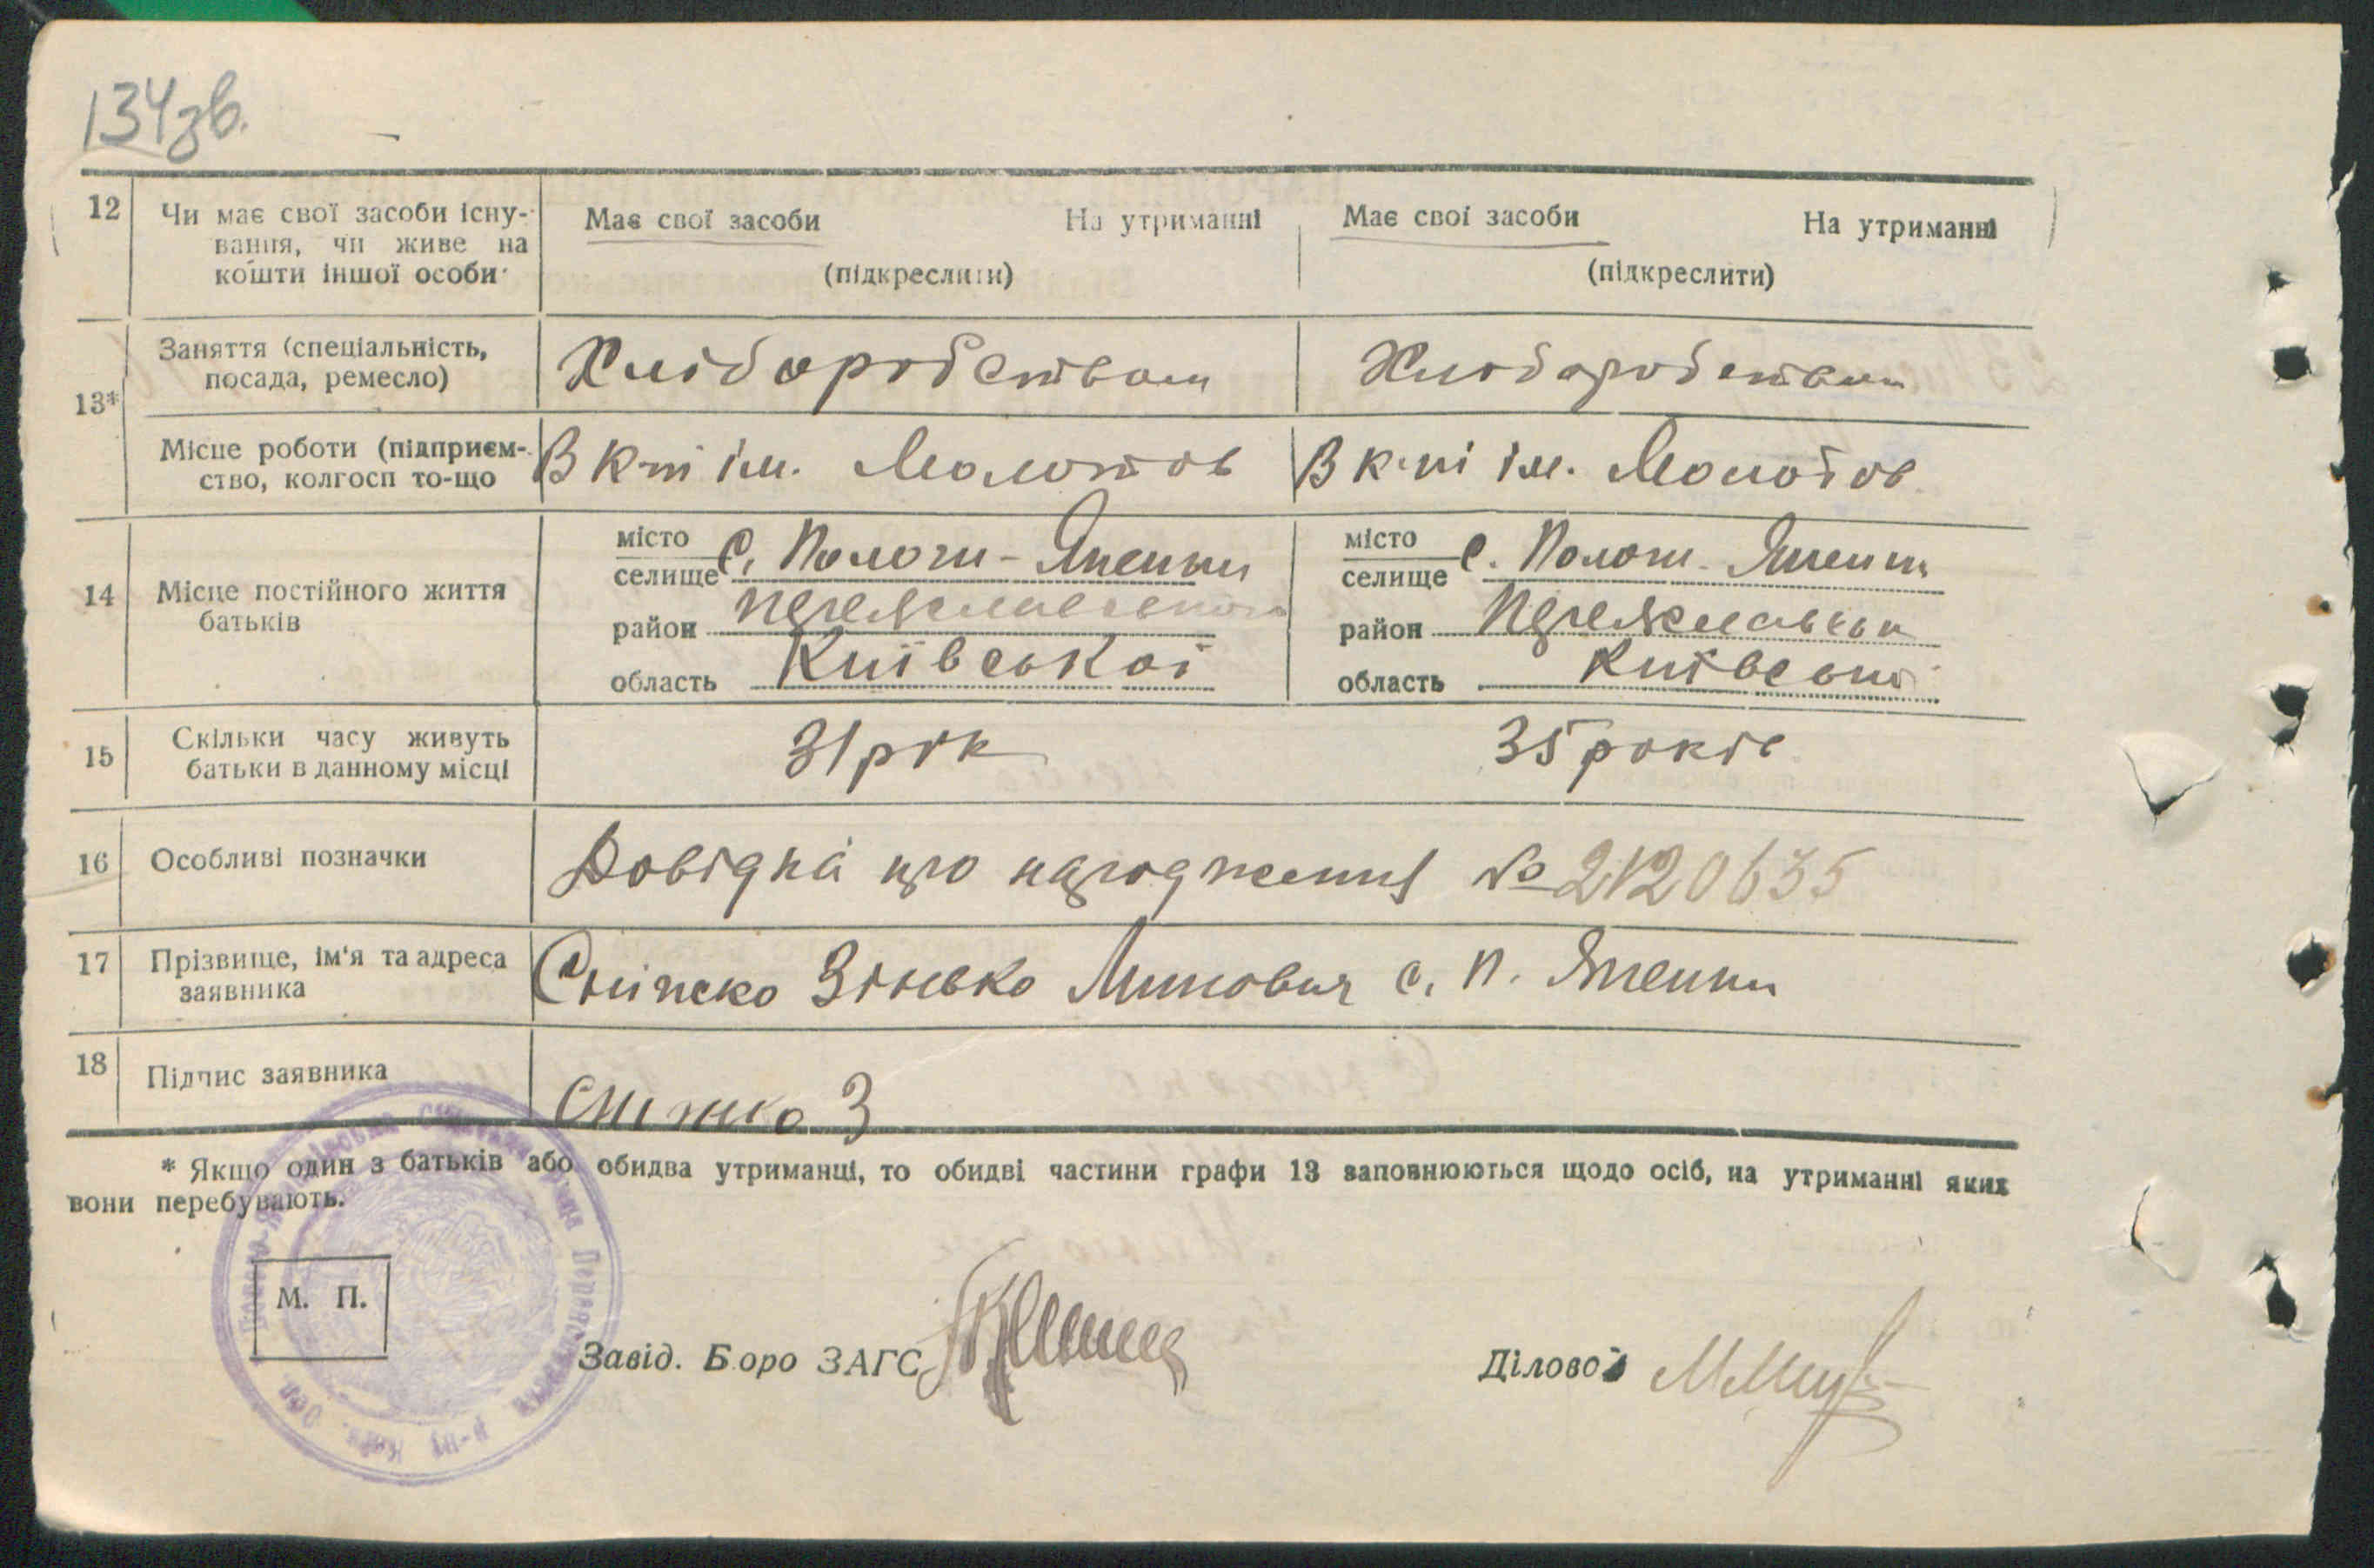 134зв.
12 Чи має свої засоби існу- Має свої засоби На утриманні Має свої засоби На утриманні
вання, чи живе на
кошти іншої особи (підкреслити) (підкреслити)
Заняття (спеціальність, Хліборобством Хліборобством
посада, ремесло)
13*
Місце роботи (підприєм- В к-пі ім. Молотов В к-пі ім. Молотов
ство, колгосп то-що
місто С. Пологи-Яненки місто с. Пологи-Яненки
селище селище
14 Місце постійного життя район Переяславського район Переяславськ
батьків
область Київської область Київської
15 Скільки часу живуть 31 рік 35 років
батьки в данному місці
16 Особливі позначки Довідка про народження № 2120635
17 Прізвище, ім'я та адреса Зінько с. П. Яненки
заявника
18 Підпис заявника З
* Якщо один з батьків або обидва утриманці, то обидві частини графи 13 заповнюються щодо осіб, на утриманні яких
вони перебувають.
М. П.
Завід. Бюро ЗАГС Діловод